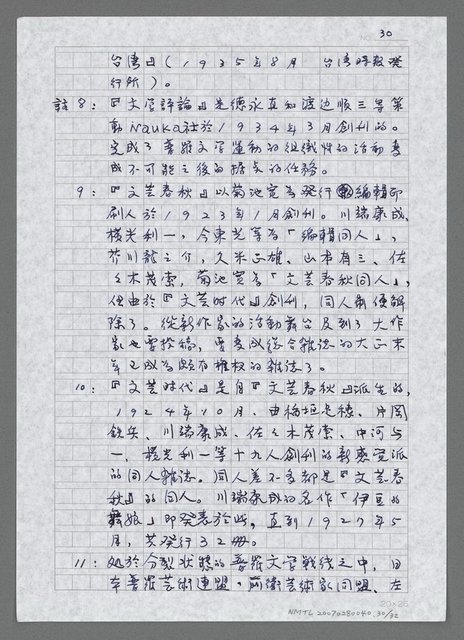 30
台湾』(1935年8月 台湾時報發
行所)。
註8:『文学評論』是德永直和渡边順三等策
動Nauka社於1934年3月創刊的。
完成了普羅文学運動的組織性的活動变
成不可能之後的據点的任務。
9:『文芸春秋』以菊池寛為發行編輯印
刷人於1923年1月創刊。川端康成、
横光利一、今東光等為「編輯同人」,
芥川龍之介、久米正雄、山本有三、佐
々木茂索,菊池寛為「文芸春秋同人」,
但由於『文芸时代』創刊,同人制便解
除了。從新作家的活動舞台及到了大作
家也要投稿,要变成综合雜誌的大正末
年已成為頗有權权的雜誌了。
10:『文芸时代』是自『文芸春秋』派生的,
1924年10月、由 片岡
鉄兵、川端康成、佐々木茂索、中河与
一、横光利一等十九人創刊的新感覚派
的同人雜誌。同人差不多都是『文芸春
秋』的同人。川端康成的名作「伊豆的
舞娘」即発表於此,直到1927年5
月,共発行32冊。
11:处於分裂状態的普羅文学戦线之中,日
本普羅芸術連盟、前衛芸術家同盟、左
20×25
NMTL 20070280040.30/32